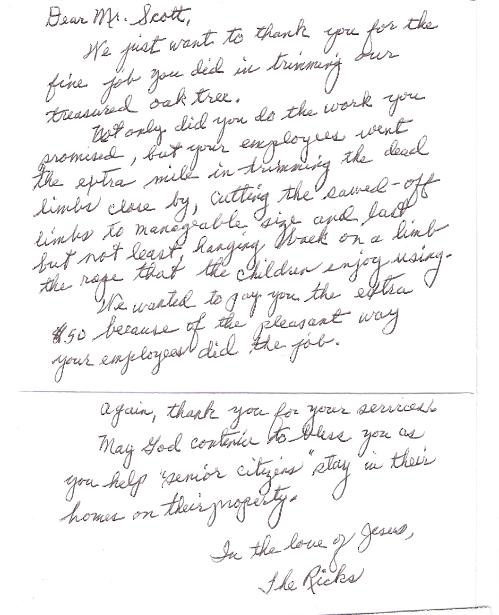 Dear Mr. Scott,
We just want to thank you for the
fine job you did in trimming our
treasured oak tree.
Not only did you do the work you
promised, but your employees went
the extra mile in trimming the dead
limbs close by, cutting the sawed-off
limbs to manageable size and last
but not least, hanging back on a limb
the rope that the children enjoy using.
We wanted to pay you the extra
$50 because of the pleasant way
your employees did the job.
Again, thank you for your services.
May God continue to bless you as
you help "senior citizens" stay in their
homes on their property.
In the love of Jesus,
The Ricks